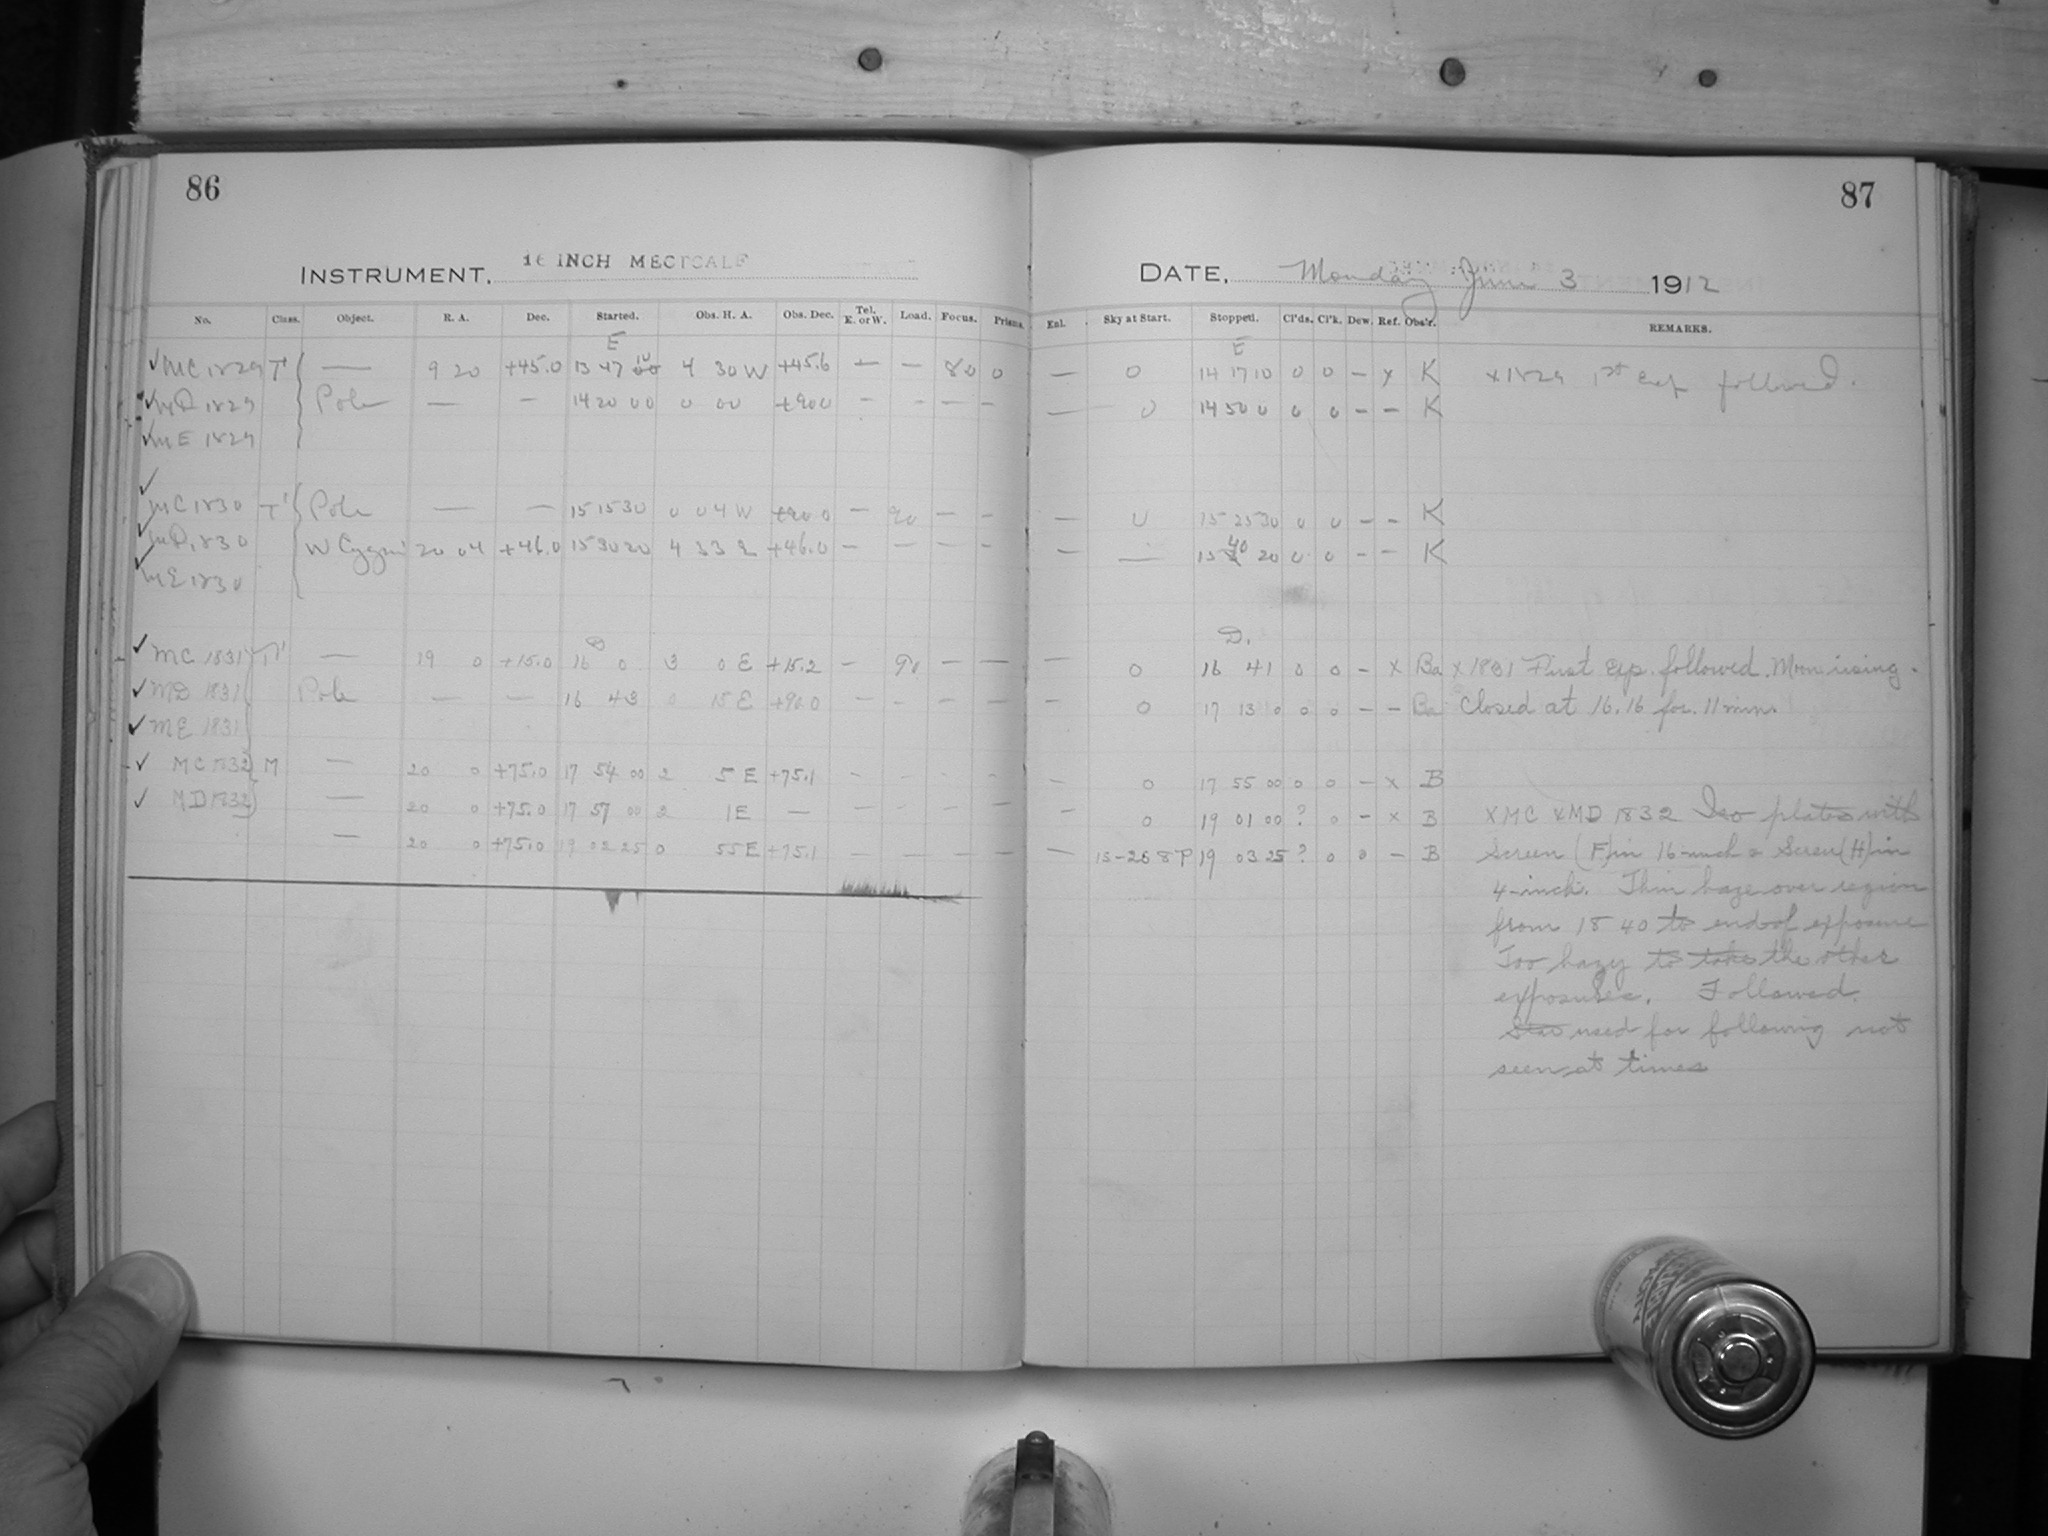 86
87
INSTRUMENT, 16 INCH METCALF
DATE, Monday June 3 1912
No. Class. Object. R. A. Dec. Started. Obs. H. A. Obs. Dec. Tel. E. or W. Load. Focus. Prisms. Enl. Sky at Start. Stopped. Cl'ds. Cl'k. Dew. Ref. Obs'r. REMARKS.
E E
✓ MC 1829 T' — 9 20 +45.0 13 47 10 4 30 W +45.6 — — 80 0 — 0 14 17 10 0 0 – x K x 1829 1st Exp followed.
✓ MD 1829 Pole — — 14 20 00 0 00 +90 0 — — — — — 0 14 50 0 0 0 – – K
✓ ME 1829
✓ MC 1830 T' Pole — — 15 15 30 0 04 W +90 0 — 90 — — — 0 15 25 30 0 0 – – K
✓ MD 1830 W Cygni 20 04 +46.0 15 30 20 4 33 +46.0 — — — — — — 15 40 20 0 0 – – K
✓ ME 1830
D D.
✓ MC 1831 T' — 19 0 +15.0 16 0 3 0 E +15.2 — 90 — — — 0 16 41 0 0 – x Ba x 1831 First Exp. followed. Moon rising.
✓ MD 1831 Pole — — 16 43 0 15 E +90.0 — — — — — 0 17 13 0 0 0 – – Ba Closed at 16.16 for 11 min.
✓ ME 1831
✓ MC 1832 M — 20 0 +75.0 17 54 00 2 5 E +75.1 — — — — — 0 17 55 00 0 0 – x B
✓ MD 1832 — 20 0 +75.0 17 57 00 2 1 E — — — — — — 0 19 01 00 ? 0 – x B x MC x MD 1832 Iso plates with
— 20 0 +75.0 19 02 25 0 55 E +75.1 — — — — — 15-25 8P 19 03 25 ? 0 0 – B Screen (F) in 16-inch & Screen (H) in
4-inch. Thin haze over region
from 18 40 to end of exposure
Too hazy to take the other
exposures. Followed.
Star used for following not
seen at times